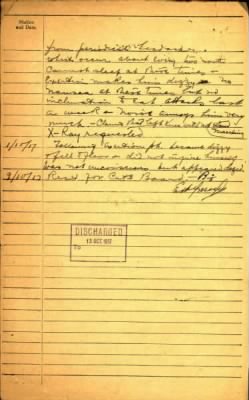 Station
and Date.
from periodical headaches
which occur about every two weeks
Cannot sleep at these times -
Exertion makes him dizzy - no
nausea at these times but no
inclination to eat attacks last
a week & noise annoys him very
much - Claims that left knee
X-Ray requested
1/10/17 Following exertion pt. became dizzy
& fell & did not injure himself
was not unconscious but appeared dazed
3/10/17 Recd for Board
DISCHARGED
13 OCT 1917
TO